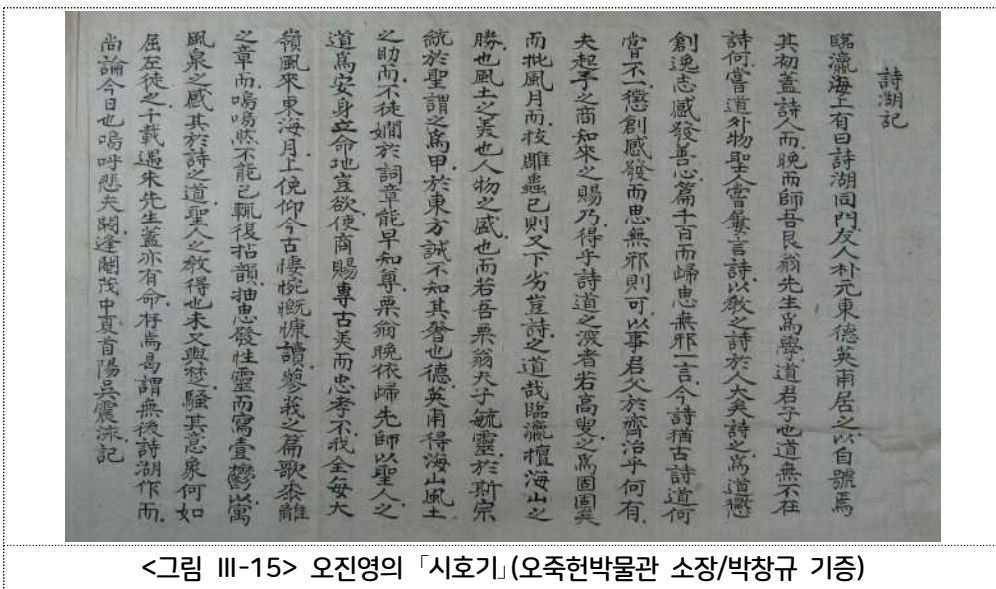 詩湖記
臨瀛海上有曰詩湖同門友人朴元東德英甫居之以自號焉
其初蓋詩人而晩而師吾艮翁先生爲學道君子也道無不在
詩何嘗道外物聖人嘗屢言詩以敎之詩於人大矣詩之爲道懲
創逸志感發善心篇千百而歸思無邪一言今詩猶古詩道何
嘗不一懲創感發而思無邪則可以事君父於齊治乎何有
夫起予之商知來之賜乃得乎詩道之深者若高叟之爲固固矣
而批風月而技雕蟲已則又下劣豈詩之道哉臨瀛擅海山之
勝也風土之美也人物之盛也而若吾栗翁夫子毓靈於斯宗
統於聖謂之爲甲於東方誠不知其奢也德英甫得海山風土
之助而不徒嫺於詞章能早知尊栗翁晩依歸先師以聖人之
道爲安身立命地豈欲使商賜專古美而忠孝不我全每大
嶺風來東海月上俛仰今古悽惋慨慷讀蓼莪之篇歌黍離
之章而嗚嗚然不能已輒復拈韻抽思發性靈而寫壹鬱以寓
風泉之感其於詩之道聖人之敎得也未又與楚騷其意象何如
屈左徒之千載遇朱先生蓋亦有命存焉曷謂無後詩湖作而
尙論今日也嗚呼悲夫閼逢閹茂中夏首陽吳震泳記
<그림 Ⅲ-15> 오진영의 「시호기」(오죽헌박물관 소장/박창규 기증)